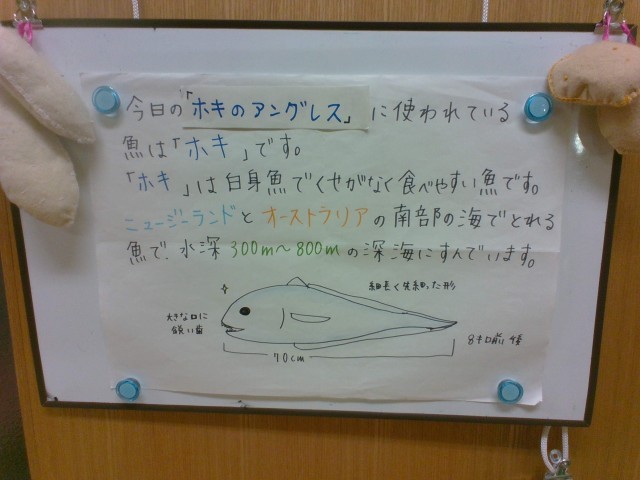 今日の「ホキのアングレス」に使われている
魚は「ホキ」です。
「ホキ」は白身魚でくせがなく食べやすい魚です。
ニュージーランドとオーストラリアの南部の海でとれる
魚で、水深300m〜800mの深海にすんでいます。
細長く先細った形
大きな口に
鋭い歯
70cm
8キロ前後